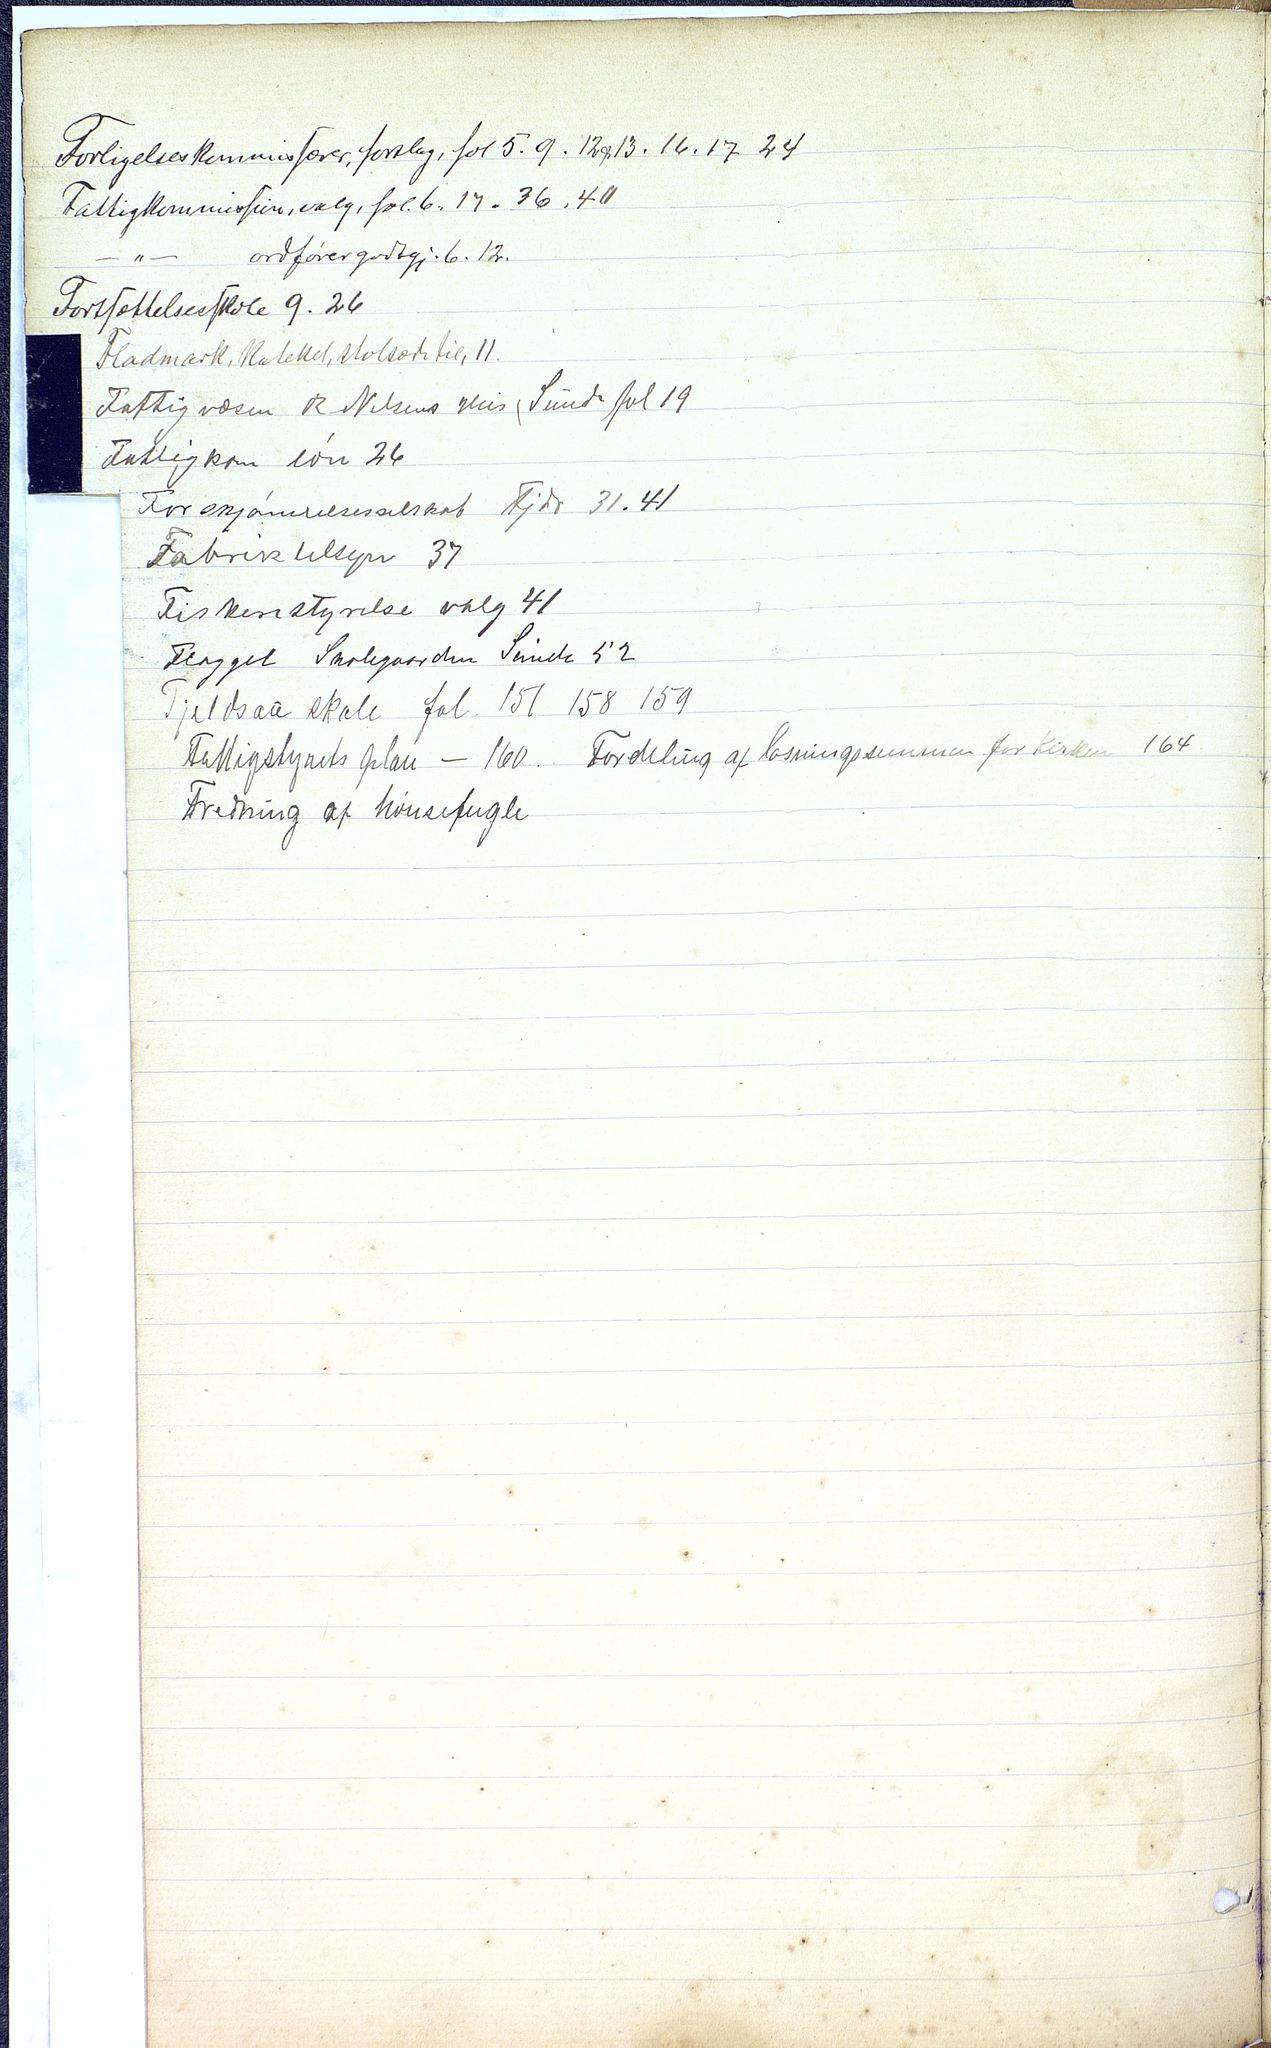 Forligelseskommissærer, forslag, fol 5. 9. 12 og 13. 16. 17 24
Fattigkommission, valg, fol. 6. 17. 36. 40
— " — ordförergodtgj. 6. 12.
Fortsættelsesskole 9. 26
Fladmark, til, 11.
Fattigvæsen R Nelsens Sunde fol 19
Fattigkom lön 26
Forskjönnelsesselskab Fjds 31. 41
Fabriktilsyn 37
Fiskeristyrelse valg 41
Flagget Skolegaarden Sunde 52
Fjeldsaa skole fol. 151 158 159
Fattigstyrets plan — 160. Fordeling af løsningssummen for Kirken 164
Fredning af hönsefugle